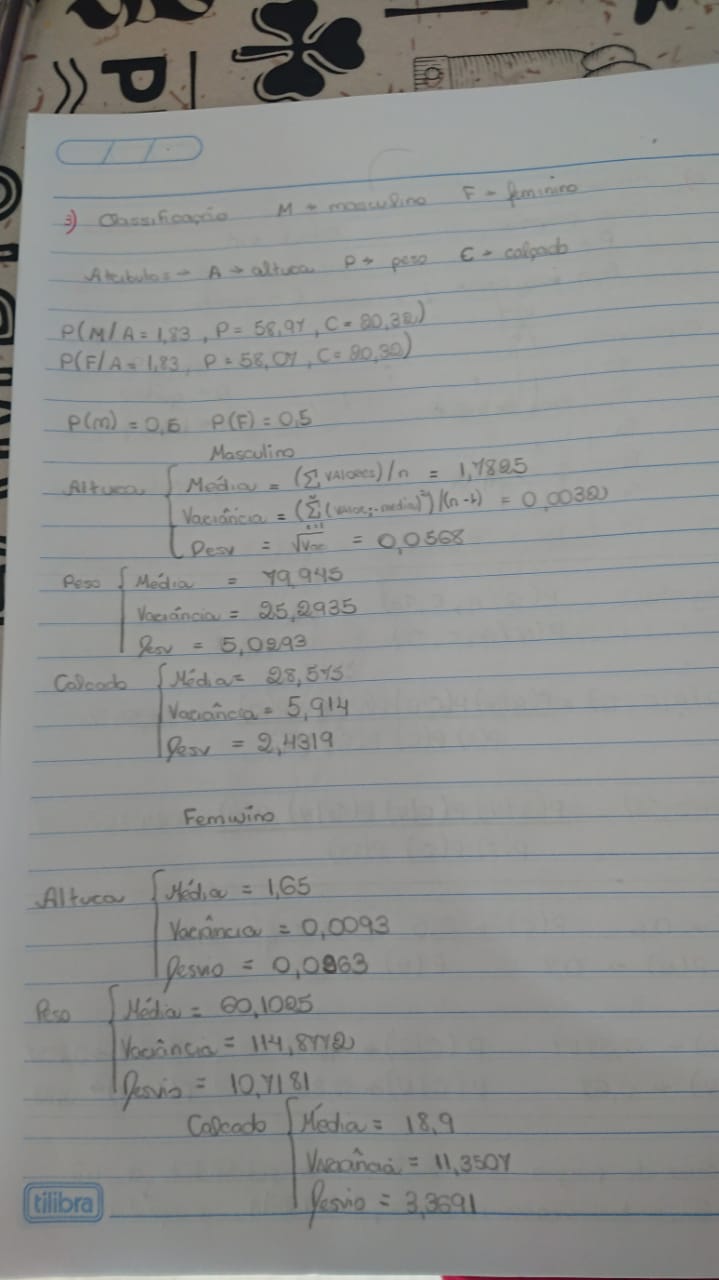 3) Classificação M → masculino F → feminino
Atributos → A → altura P → peso C → calçado
P(M/A = 1,83, P = 58,97, C = 20,32)
P(F/A = 1,83, P = 58,97, C = 20,32)
P(m) = 0,5 P(F) = 0,5
Masculino
Altura Média = (∑ valores)/n = 1,7825
Variância = (∑ (valor - media)²)/(n-1) = 0,0032
Desv = √var = 0,0568
Peso Média = 79,945
Variância = 25,2935
Desv = 5,0293
Calcado Média = 28,575
Variância = 5,914
Desv = 2,4319
Feminino
Altura Média = 1,65
Variância = 0,0093
Desvio = 0,0963
Peso Média = 60,1025
Variância = 114,8772
Desvio = 10,7181
Calcado Média = 18,9
Variância = 11,3507
Desvio = 3,3691
tilibra